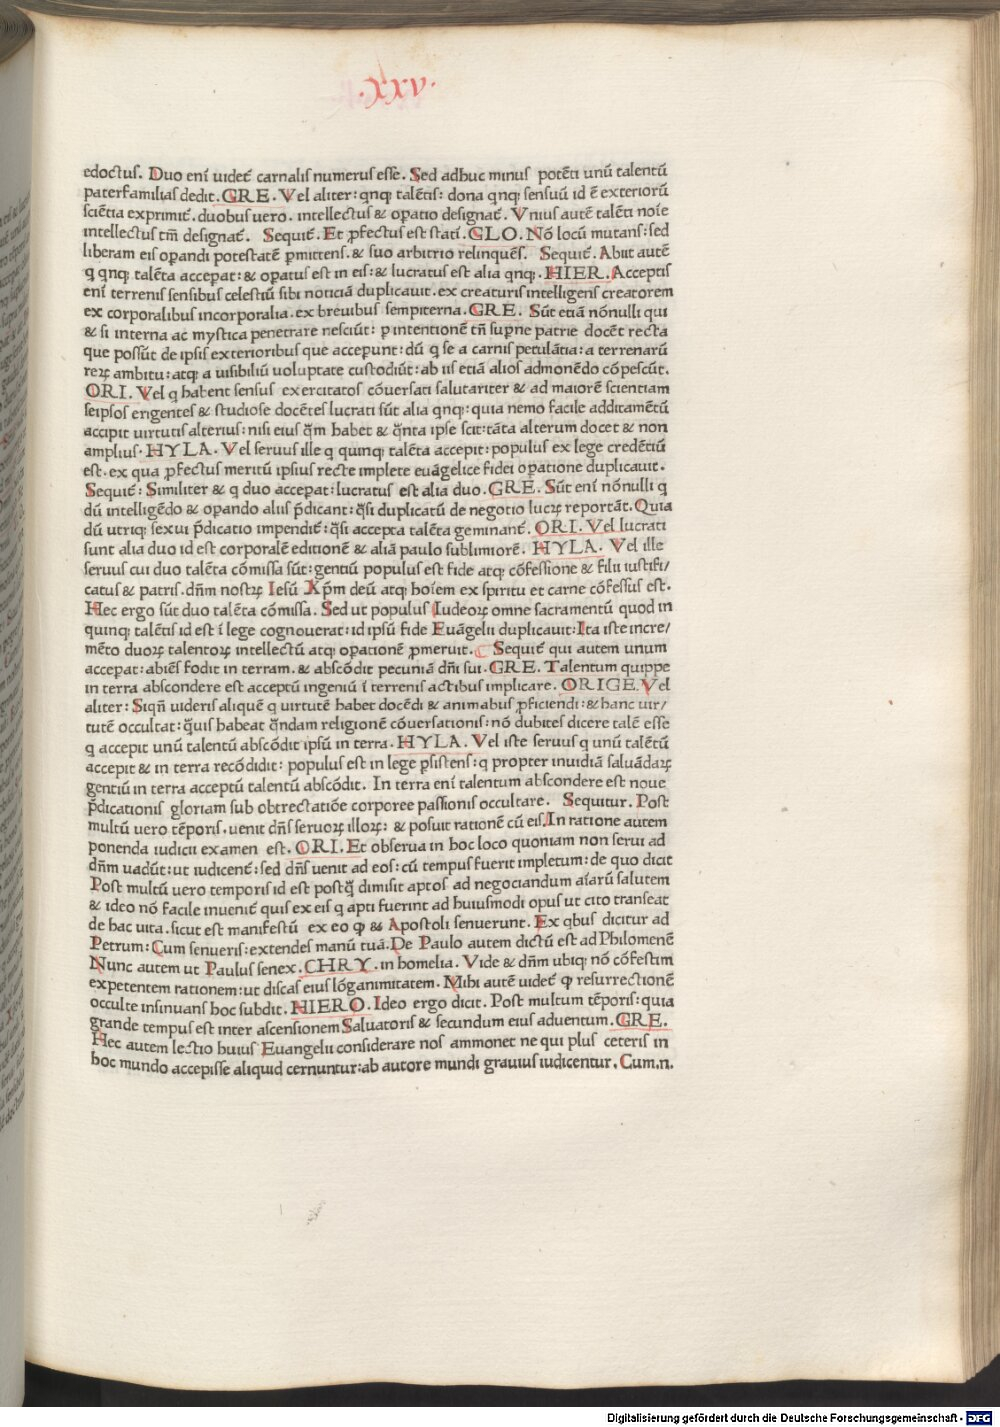 .xxv.
edoctus. Duo eni᷑ uidet᷑ carnalis numerus esse. Sed adhuc minus potẽti unũ talentũ
paterfamilias dedit. GRE. Vel aliter: qnq; talẽtis: dona qnq; sensuũ id ẽ exteriorũ
sciẽtia exprimit᷑. duobus uero. intellectus & opatio designat᷑. Vnius autẽ talẽti noĩe
intellectus tm̃ designat᷑. Sequit᷑. Et ꝓfectus est stati᷑. GLO. Nõ locũ mutans: sed
liberam eis oꝑandi potestatẽ ꝑmittens. & suo arbitrio relinquẽs. Sequit᷑. Abiit autẽ
q qnq; talẽta acceꝑat: & oꝑatus est in eis: & lucratus est alia qnq;. HIER. Acceptis
eni᷑ terrenis sensibus celestiũ sibi noticiã duplicauit. ex creaturis intelligens creatorem
ex corporalibus incorporalia. ex breuibus sempiterna. GRE. Sũt etiã nõnulli qui
& si interna ac mystica penetrare nesciũt: ꝑ intentionẽ tñ supne patrie docẽt recta
que possũt de ipsis exterioribus que acceperunt: dũ q se a carnis petulãtia: a terrenarũ
reꝝ ambitu: atq; a uisibiliũ uoluptate custodiũt: ab iis etiã alios admonẽdo cõpescũt.
ORI. Vel q habent sensus exercitatos cõuersati salutariter & ad maiorẽ scientiam
seipsos erigentes & studiose docẽtes lucrati sũt alia qnq;: quia nemo facile additamẽtũ
accipit uirtutis alterius: nisi eius q̃m habet & q̃nta ipse scit: tãta alterum docet & non
amplius. HYLA. Vel seruus ille q quinq; talẽta accepit: populus ex lege credẽtiũ
est. ex qua ꝓfectus meritũ ipsius recte implete euãgelice fidei oꝑatione duplicauit.
Sequit᷑: Similiter & q duo acceꝑat: lucratus est alia duo. GRE. Sũt eni᷑ nõnulli q
dũ intelligẽdo & oꝑando aliis p̃dicant: q̃si duplicatũ de negotio lucꝝ reportãt. Quia
dũ utriq; sexui p̃dicatio impendit᷑: q̃si accepta talẽta geminant᷑. ORI. Vel lucrati
sunt alia duo id est corporalẽ editionẽ & aliã paulo sublimiorẽ. HYLA. Vel ille
seruus cui duo talẽta cõmissa sũt: gentiũ populus est fide atq; cõfessione & filii iustifi/
catus & patris. dñm nostꝝ Iesũ Xp̃m deũ atq; hoĩem ex spiritu et carne cõfessus est.
Hec ergo sũt duo talẽta cõmissa. Sed ut populus Iudeoꝝ omne sacramentũ quod in
quinq; talẽtis id est i᷑ lege cognouerat: id ipsũ fide Euãgelii duplicauit: Ita iste incre/
mẽto duoꝝ talentoꝝ intellectũ atq; oꝑationẽ ꝓmeruit. Sequit᷑ qui autem unum
acceꝑat: abiẽs fodit in terram. & abscõdit pecuniã dñi sui. GRE. Talentum quippe
in terra abscondere est acceptũ ingeniũ i᷑ terrenis actibus implicare. ORIGE. Vel
aliter: Siqñ uideris aliquẽ q uirtutẽ habet docẽdi & animabus ꝓficiendi: & hanc uir/
tutẽ occultat: q̃uis habeat q̃ndam religionẽ cõuersationis: nõ dubites dicere talẽ esse
q accepit unũ talentũ abscõdit ipsũ in terra. HYLA. Vel iste seruus q unũ talẽtũ
accepit & in terra recõdidit: populus est in lege ꝑsistens: q propter inuidiã saluãdaꝝ
gentiũ in terra acceptũ talentũ abscõdit. In terra eni᷑ talentum abscondere est noue
p̃dicationis gloriam sub obtrectatiõe corporee passionis occultare. Sequitur. Post
multũ uero tẽporis. uenit dñs seruoꝝ illoꝝ: & posuit rationẽ cũ eis. In ratione autem
ponenda iudicii examen est. ORI. Et obserua in hoc loco quoniam non serui ad
dñm uadũt: ut iudicent᷑: sed dñs uenit ad eos: cũ tempus fuerit impletum: de quo dicit
Post multũ uero temporis id est postq̃ dimisit aptos ad negociandum aĩarũ salutem
& ideo nõ facile inuenit᷑ quis ex eis q apti fuerint ad huiusmodi opus ut cito transeat
de hac uita. sicut est manifestũ ex eo ꝙ & Apostoli senuerunt. Ex qbus dicitur ad
Petrum: Cum senueris: extendes manũ tuã. De Paulo autem dictũ est ad Philomenẽ
Nunc autem ut Paulus senex. CHRY. in homelia. Vide & dñm ubiq; nõ cõfestim
expetentem rationem: ut discas eius lõganimitatem. Mihi autẽ uidet᷑ ꝙ resurrectionẽ
occulte insinuans hoc subdit. HIERO. Ideo ergo dicit. Post multum tẽporis: quia
grande tempus est inter ascensionem Saluatoris & secundum eius aduentum. GRE.
Hec autem lectio huius Euangelii considerare nos ammonet ne qui plus ceteris in
hoc mundo accepisse aliquid cernuntur: ab autore mundi grauius iudicentur. Cum.n.
Digitalisierung gefördert durch die Deutsche Forschungsgemeinschaft - DFG